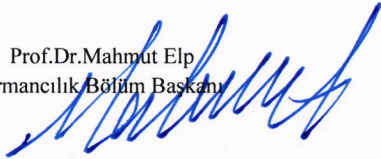 Prof.Dr.Mahmut Elp
rmancılık Bölüm Başkanı